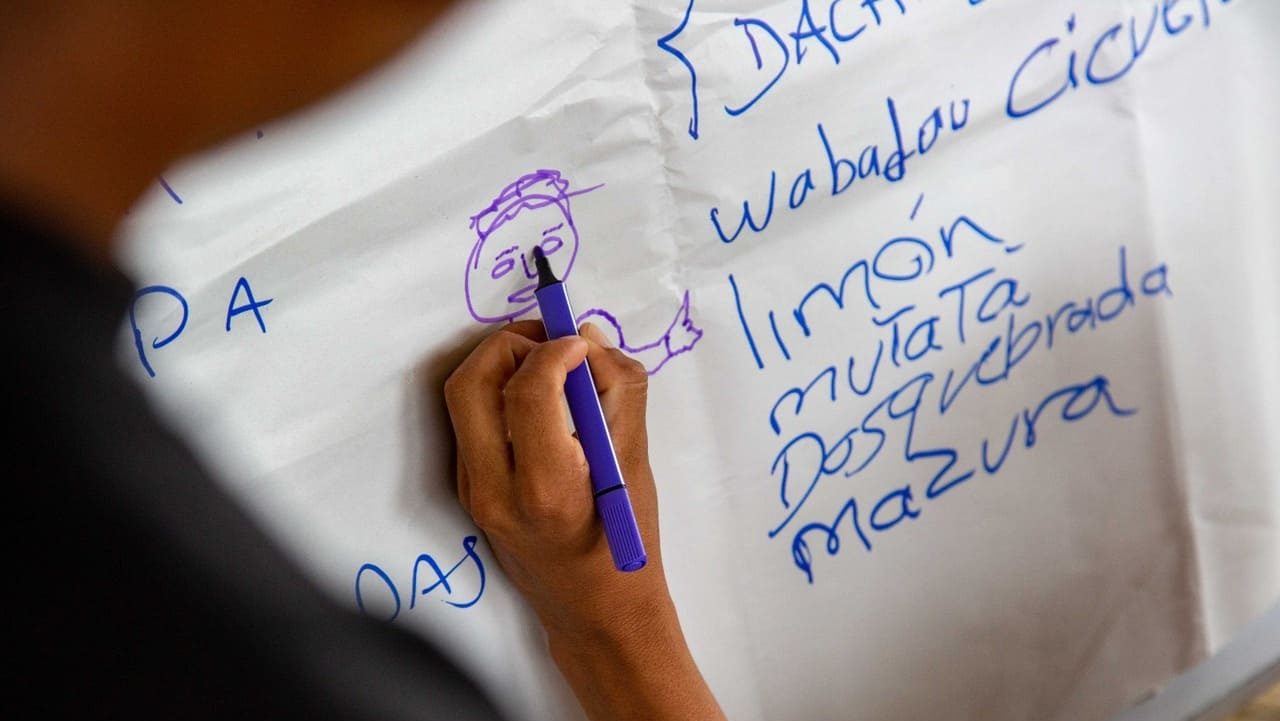 DACH
wabadau Cicuen
limón
mutatá
Dosquebrada
mazura
PA
DAS